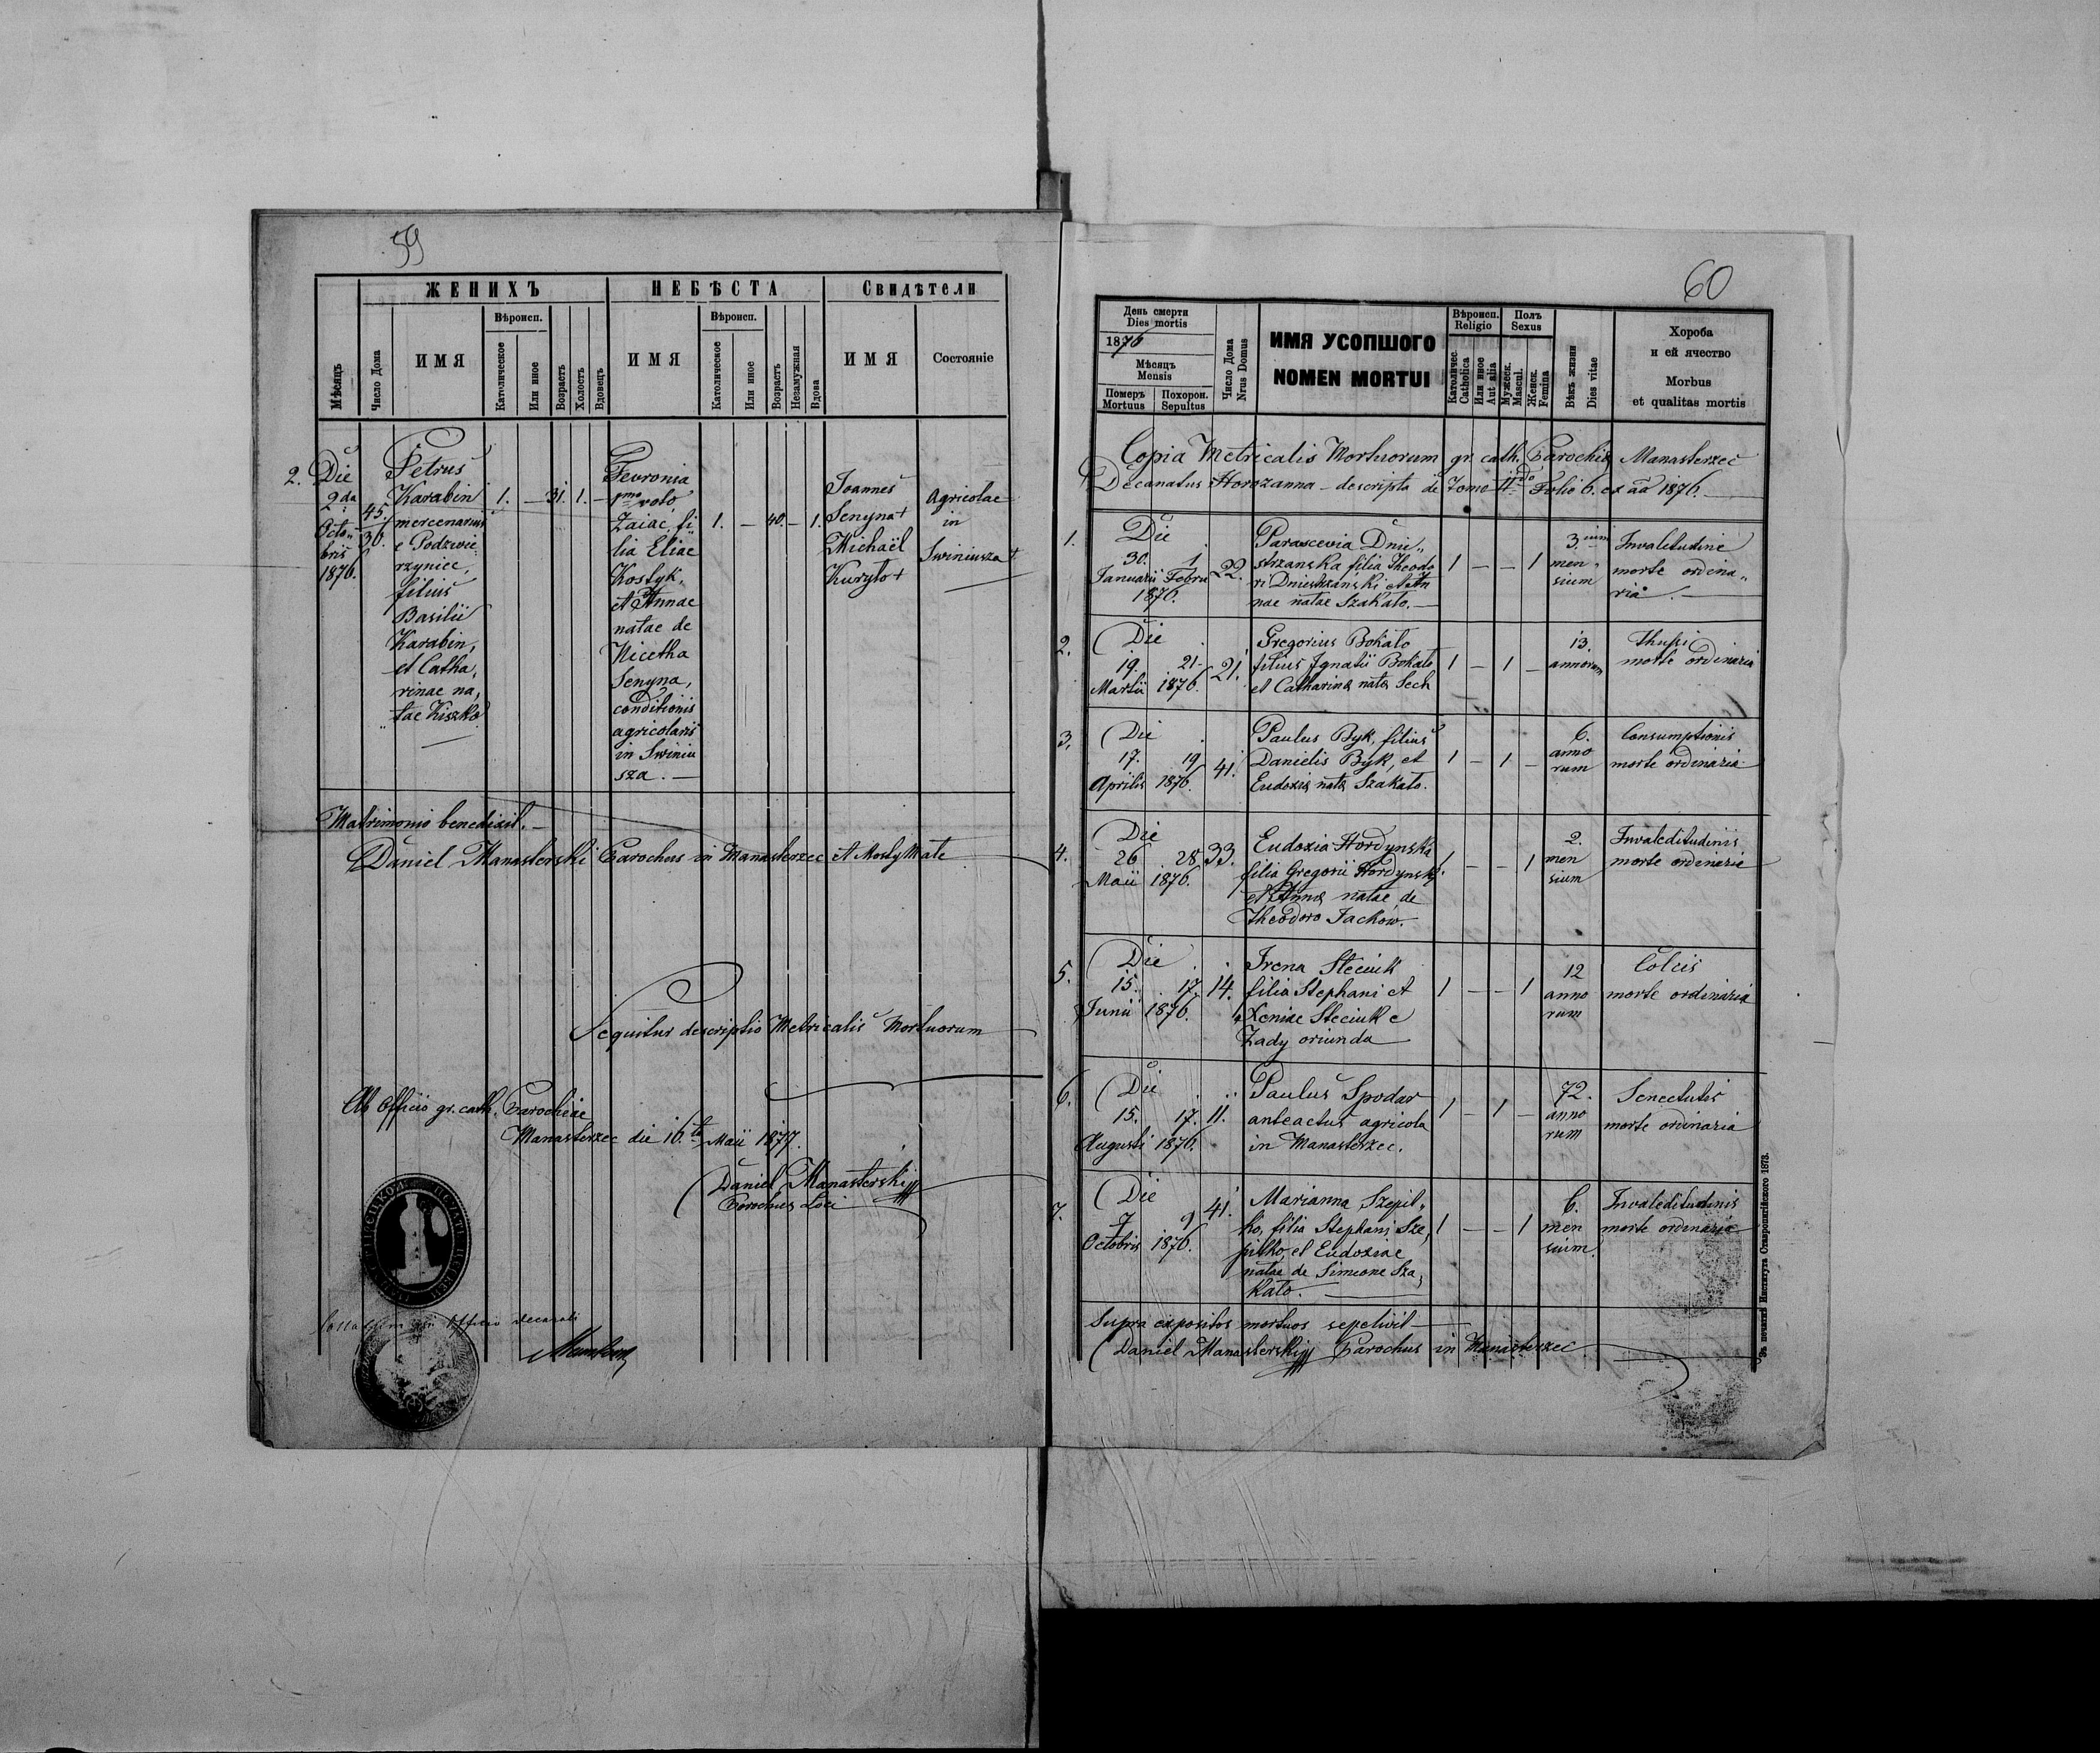 59
ЖЕНИХЪ
НЕБѢСТА
Свидѣтели
Мѣсяцъ
Число Дома
ИМЯ
Вѣроисп.
Католическое
Или иное
Возрастъ
Холостъ
Вдовецъ
ИМЯ
Вѣроисп.
Католическое
Или иное
Возрастъ
Незамужная
Вдова
ИМЯ
Состояніе
2.
Die
2da
Octo„
bris
1876.
45.
36.
Petrus
Karabin
mercenarius
e Podzwie
rzyniec,
filius
Basilii
Karabin,
et Catha,
rinae na,
tae Kiszko
1. — 31. 1. —
Fevronia
1mo voto
Zaiac, fi
lia Eliae
Kostyk,
et Annae
natae de
Nicetha
Senyna,
conditionis
agricolaris
in Swiniu
sza. —
1. — 40. — 1.
Joannes
Senyna +
Michaël
Kuryło +
Agricolae
in
Swiniusza +
Matrimonio benedixit. —
Daniel Manasterski Parochus in Manasterzec et Mosty Małe
Sequitur descriptio Metricalis Mortuorum
Ab Officio gr. cath. Parochiae
Manasterzec die 16.ta Maii 1877.
Daniel Manasterski
Parochus Loci
Officio decanali
60
День смерти
Dies mortis
1876
Мѣсяцъ
Mensis
Померъ
Mortuus
Похорон.
Sepultus
Число Дома
Nrus Domus
ИМЯ УСОПШОГО
NOMEN MORTUI
Вѣроисп.
Religio
Католичес.
Catholica
Или иное
Aut alia
Полъ
Sexus
Мужеск.
Mascul.
Женск.
Femina
Вѣкъ жизни
Dies vitae
Хороба
и ей ячество
Morbus
et qualitas mortis
Copia Metricalis Mortuorum gr. cath. Parochia Manasterzec
Decanatus Horozanna — descripta de Tomo IIdo Folio 6. ex aa 1876. —
1.
Die
30. 1
Januarii Febru
1876.
22.
Parascevia Dnie„
strzanska filia Theodo
ri Dniestrzanski et An
nae natae Szakało. —
1 — — 1
3.ium
men„
sium
Invaletudine
morte ordina„
ria. —
2.
Die
19. 21.
Martii 1876.
21.
Gregorius Bokało
filius Ignatii Bokało
et Catharina nata Sech
1 — 1 —
13.
annorum
thusi
morte ordinaria
3.
Die
17. 19
Aprilis 1876.
41.
Paulus Byk, filius
Danielis Byk, et
Eudoxia nata Szakało.
1 — 1 —
6.
anno
rum
Consumptionis
morte ordinaria
4.
Die
26 28
Maii 1876.
33.
Eudoxia Hordynska
filia Gregorii Hordynski
et Anna natae de
Theodoro Jackow.
1 — — 1
2.
men
sium
Invaleditudinis
morte ordinaria
5.
Die
15. 17.
Junii 1876.
14.
Irena Steciuk
filia Stephani et
Xeniae Steciuk e
Zady oriunda
1 — — 1
12
anno
rum
Colcis
morte ordinaria
6.
Die
15. 17.
Augusti 1876.
11.
Paulus Spodar
anteactus agricola
in Manasterzec.
1 — 1 —
72.
anno
rum
Senectutis
morte ordinaria
7.
Die
7 9
Octobris 1876.
41.
Marianna Szepit„
ko, filia Stephani Sze,
pitko, et Eudoxiae
natae de Simeone Sza,
kało. —
1 — — 1
6.
men
sium
Invaleditudinis
morte ordinaria
Supra expositos mortuos sepelivit —
Daniel Manasterski Parochus in Manasterzec
Зъ печатнѣ Института Ставропигійского 1873.